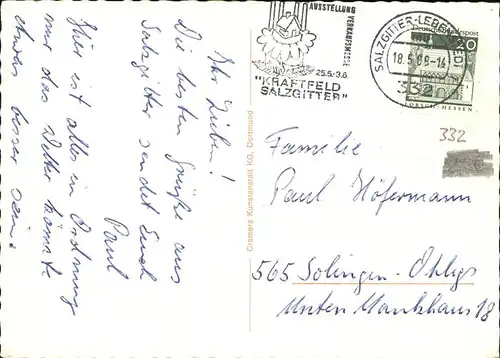 Ihr Lieben!
Die besten Grüße aus
Salzgitter sendet Euch
Paul
Hier ist alles in Ordnung
nur das Wetter könnte
etwas besser sein.
Cramers Kunstanstalt KG, Dortmund
AUSSTELLUNG
VERKAUFSMESSE
25.5.-3.6.
"KRAFTFELD
SALZGITTER"
SALZGITTER-LEBENSTEDT
18.5.68-14
332
20
LORSCH/HESSEN
332
Familie
Paul Höfermann
565 Solingen-Ohligs
Unten Mankhaus 18